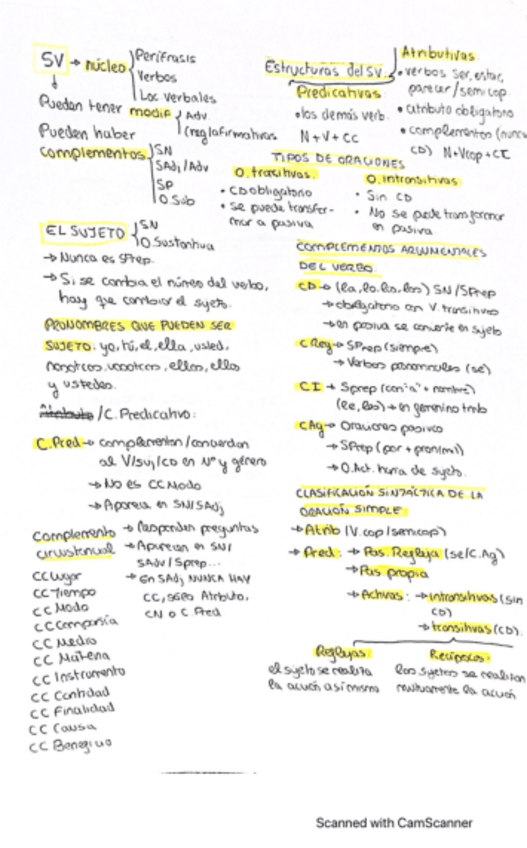 SV → núcleo
Perífrasis
Verbos
Loc. verbales
Pueden tener modif
Adv.
(reg/afirmativas
Pueden haber
complementos
SN
SAdj/Adv
SP
O.Sub
EL SUJETO
SN
O.Sustantiva
→ Nunca es SPrep.
→ Si se cambia el número del verbo,
hay que cambiar el sujeto.
PRONOMBRES QUE PUEDEN SER
SUJETO: yo, tú, él, ella, usted,
nosotros, vosotros, ellos, ellas
y ustedes.
Atributo /C. Predicativo:
C.Pred → complementan/concuerdan
al V/suj/CD en Nº y género
→ No es CCModo
→ Aparece en SN/SAdj
Complemento
circunstancial
→ Responden preguntas
→ Aparecen en SN/
SAdv/Sprep...
→ En SAdj NUNCA HAY
CC, sólo Atributo,
CN o C.Pred
CC Lugar
CC Tiempo
CC Modo
CC Compañía
CC Medio
CC Materia
CC Instrumento
CC Cantidad
CC Finalidad
CC Causa
CC Beneficio
Estructuras del SV.
Predicativas
• los demás verb.
N+V+CC
Atributivas
• verbos ser, estar,
parecer/semicop.
• atributo obligatorio
• complementos (nunca
CD) N+Vcop+CC
TIPOS DE ORACIONES
O. transitivas.
• CD obligatorio
• se puede transfor-
mar a pasiva
O. intransitivas
• Sin CD
• No se puede transformar
en pasiva.
COMPLEMENTOS ARGUMENTALES
DEL VERBO.
CD → (la, lo, los, las) SN/SPrep
→ obligatorio con V. transitivos
→ en pasiva se convierte en sujeto
C Reg → SPrep (siempre)
→ Verbos pronominales (se)
CI → Sprep (con "a" + nombre)
(le, les) → en femenino tmb
CAg → Oraciones pasivas
→ SPrep (por + pron/ml)
→ O.Act. hará de sujeto.
CLASIFICACIÓN SINTÁCTICA DE LA
ORACIÓN SIMPLE:
→ Atrib (V.cop/semicop)
→ Pred: → Pas. Refleja (se/C.Ag)
→ Pas propia
→ Activas: → intransitivas (sin
CD)
→ transitivas (CD).
Reflejas:
el sujeto se realiza
la acción a sí mismo
Recíprocas:
los sujetos se realizan
mutuamente la acción
Scanned with CamScanner